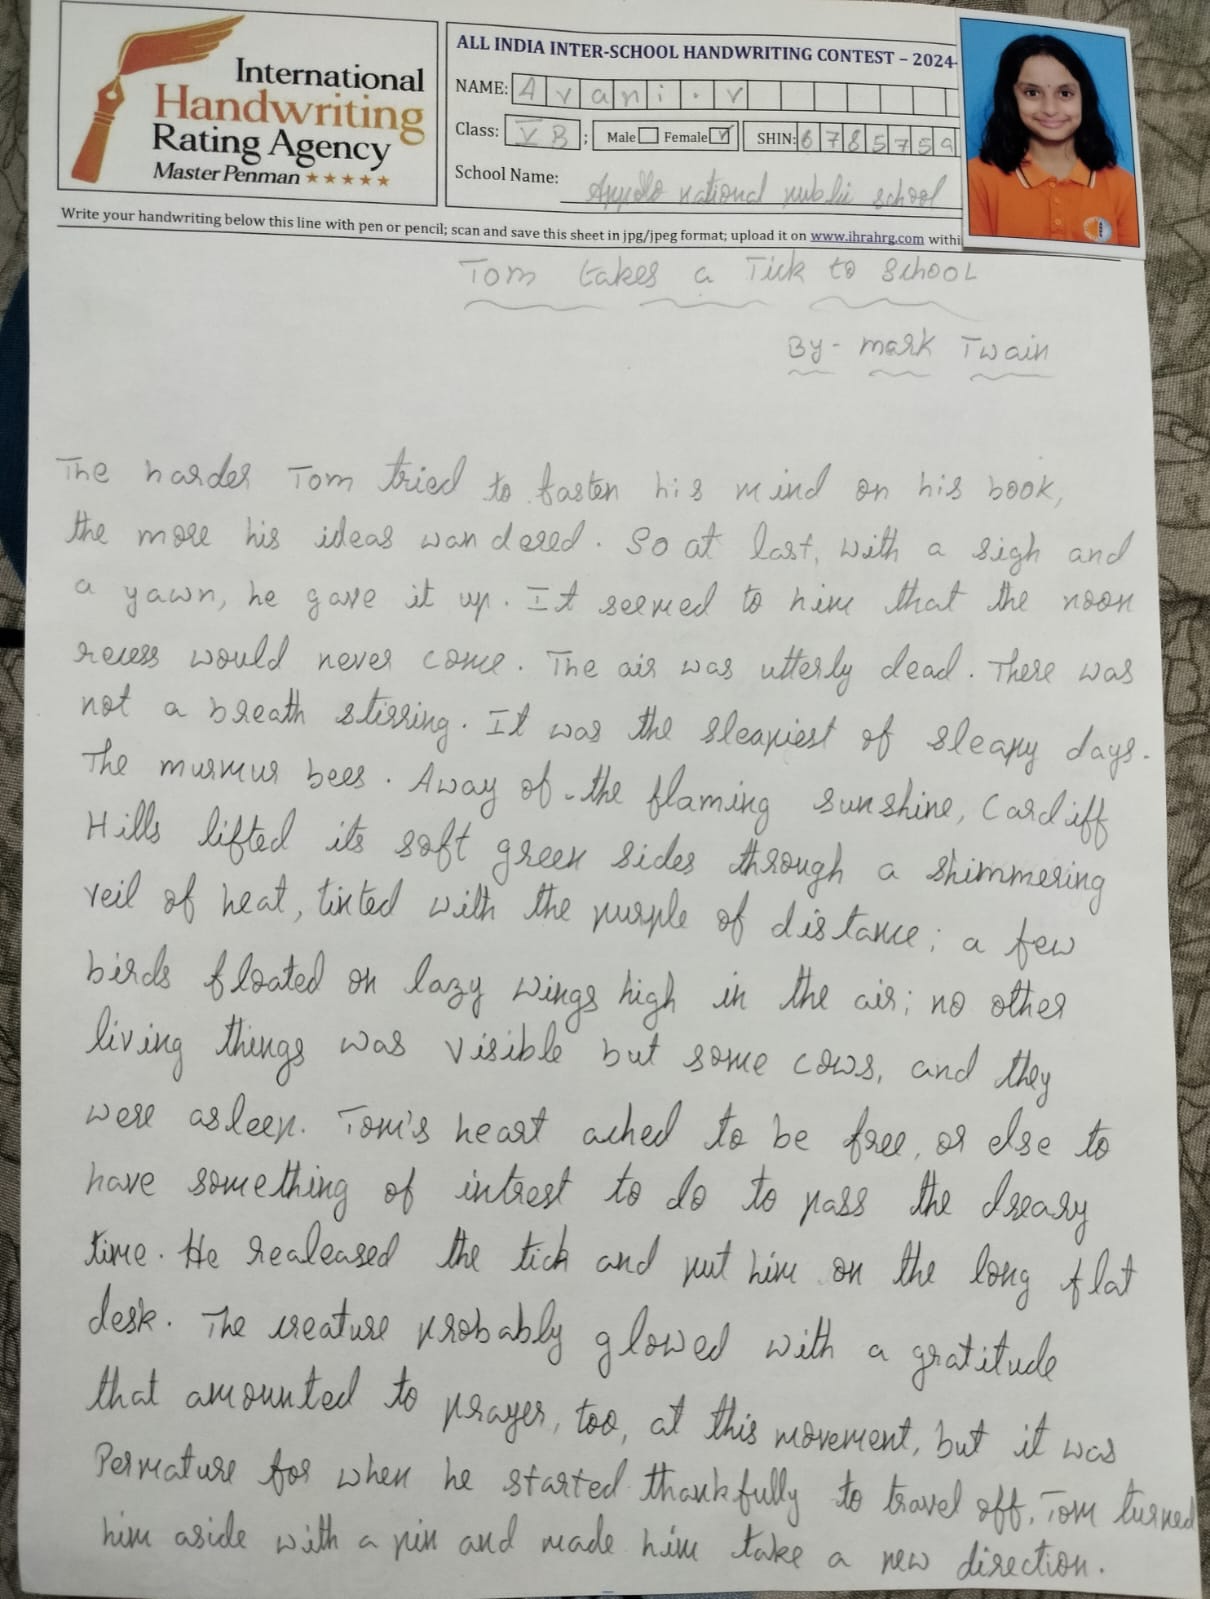 International
Handwriting
Rating Agency
Master Penman ★★★★★
ALL INDIA INTER-SCHOOL HANDWRITING CONTEST – 2024-
NAME: Avani.v
Class: V B ; Male Female ✓ SHIN: 6785759
School Name: national public school
Write your handwriting below this line with pen or pencil; scan and save this sheet in jpg/jpeg format; upload it on www.ihrahrg.com withi
Tom takes a Tick to School
By - mark Twain
The harder Tom tried to fasten his mind on his book,
the more his ideas wandered. So at last, with a sigh and
a yawn, he gave it up. It seemed to him that the noon
recess would never come. The air was utterly dead. There was
not a breath stirring. It was the sleapiest of sleapy days.
The murmur bees. Away of the flaming sunshine, Cardiff
Hills lifted its soft green sides through a shimmering
veil of heat, tinted with the purple of distance; a few
birds floated on lazy wings high in the air; no other
living things was visible but some cows, and they
were asleep. Tom's heart ached to be free, or else to
have something of intrest to do to pass the dreary
time. He realeased the tick and put him on the long flat
desk. The creature probably glowed with a gratitude
that amounted to prayer, too, at this movement, but it was
Permature for when he started thankfully to travel off, Tom turned
him aside with a pin and made him take a new direction.